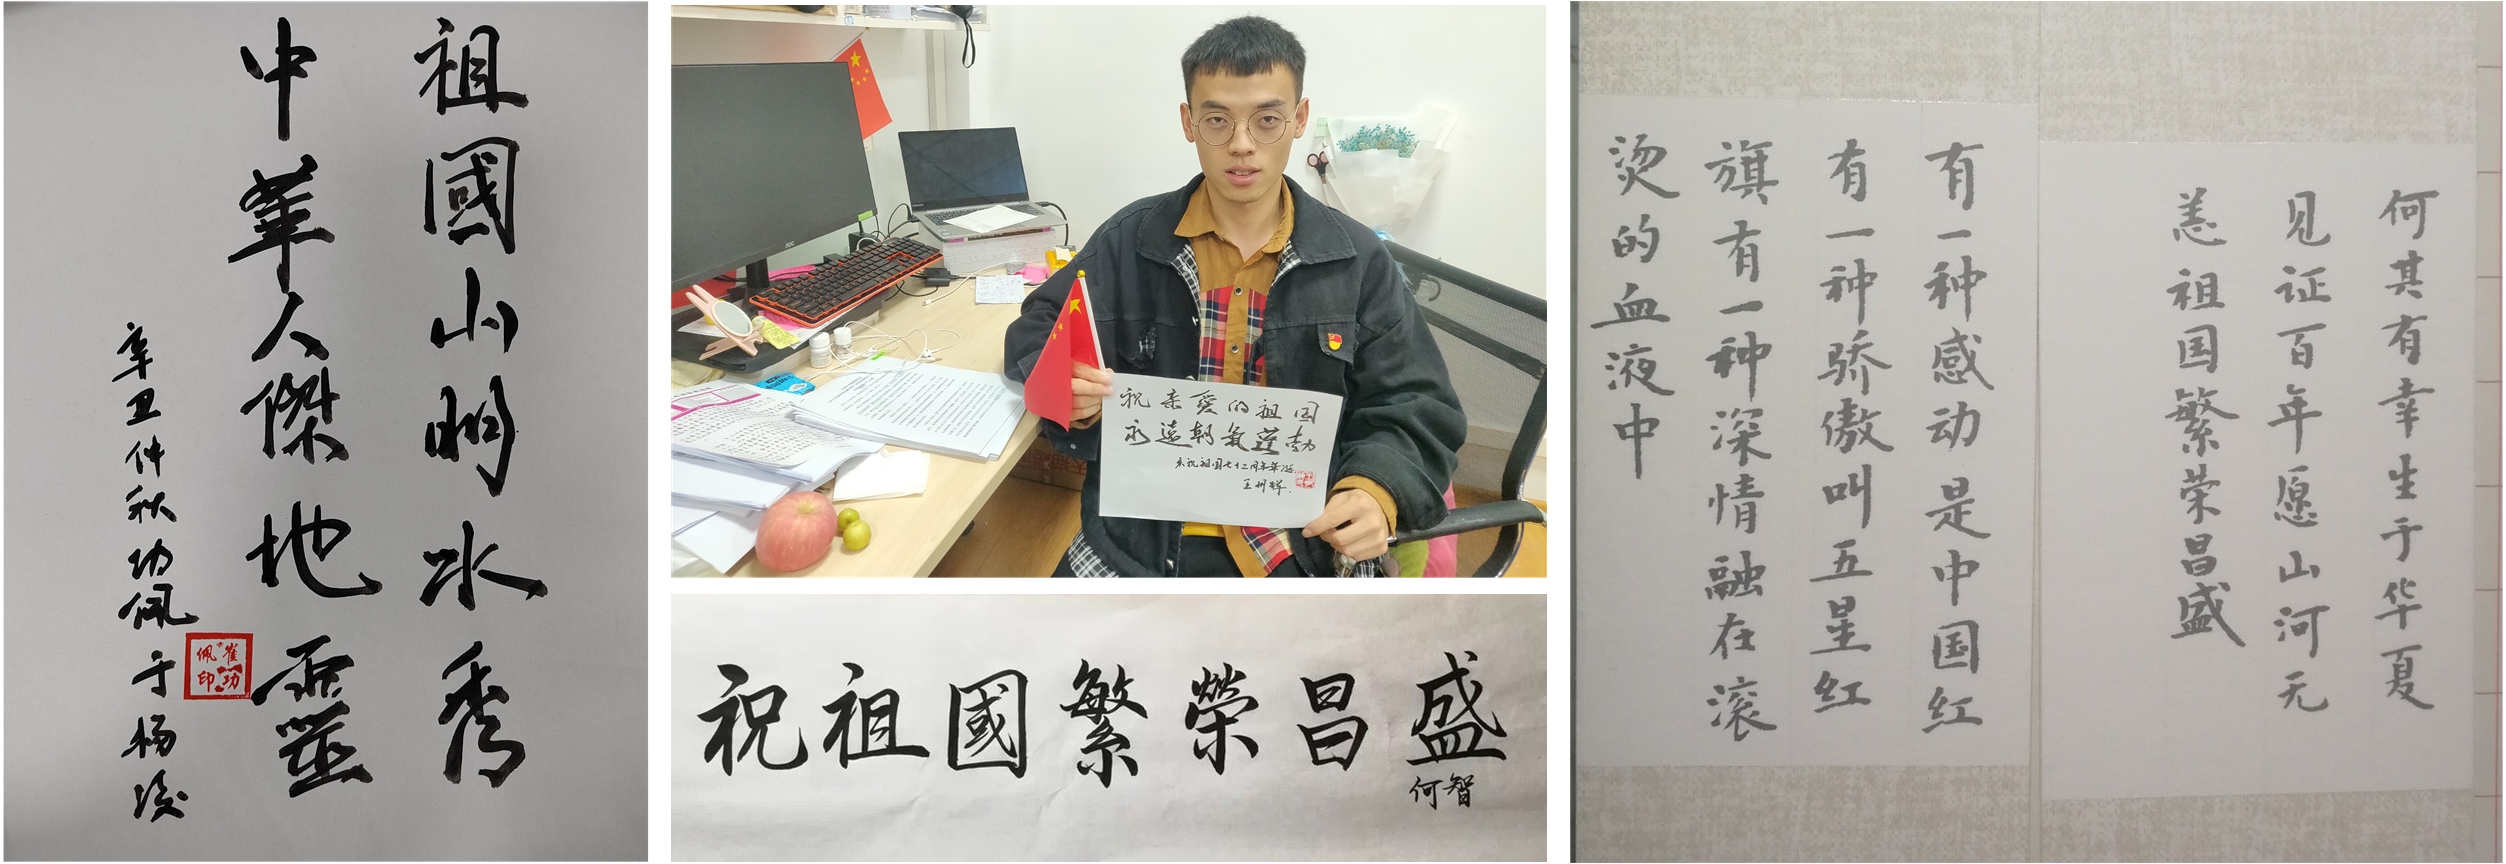 祖國山明水秀
中華人傑地靈
辛丑仲秋功佩于杨凌
崔功佩印
AOC
祝亲愛的祖国
永遠朝氣蓬勃
庆祝祖国七十二周年华诞
祝祖國繁榮昌盛
何智
何其有幸生于华夏
见证百年愿山河无
恙祖国繁荣昌盛
有一种感动是中国红
有一种骄傲叫五星红
旗有一种深情融在滚
烫的血液中